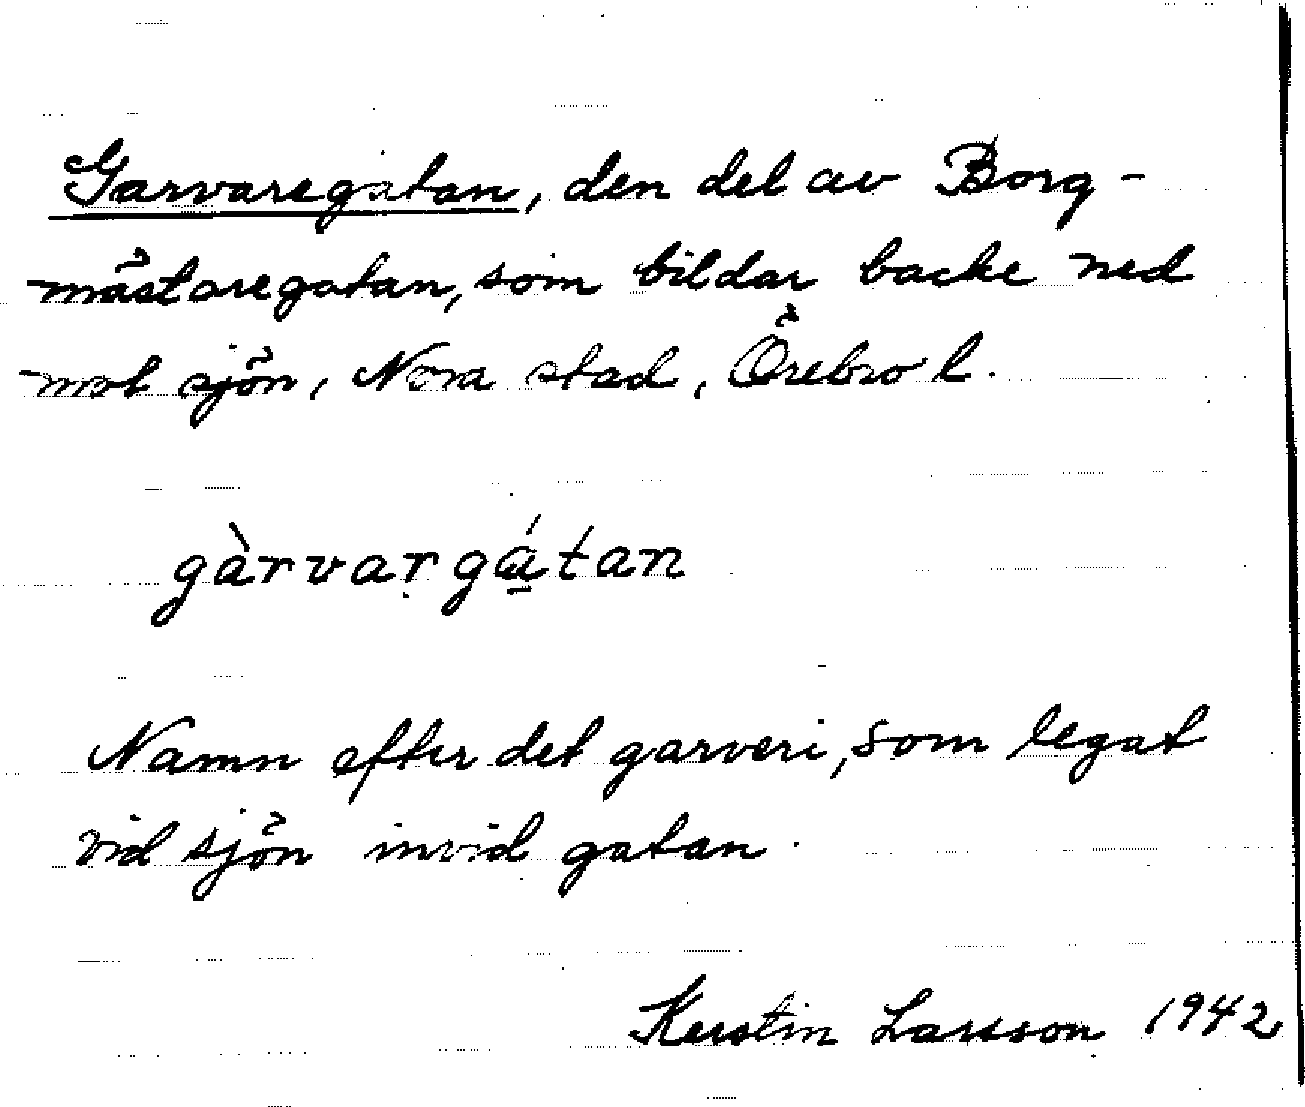 Garvaregatan, den del av Borg-
mästaregatan, som bildar backe ned
mot sjön, Nora stad, Örebro l.
gàrvargá̱tan
Namn efter det garveri, som legat
vid sjön invid gatan.
Kerstin Larsson 1942